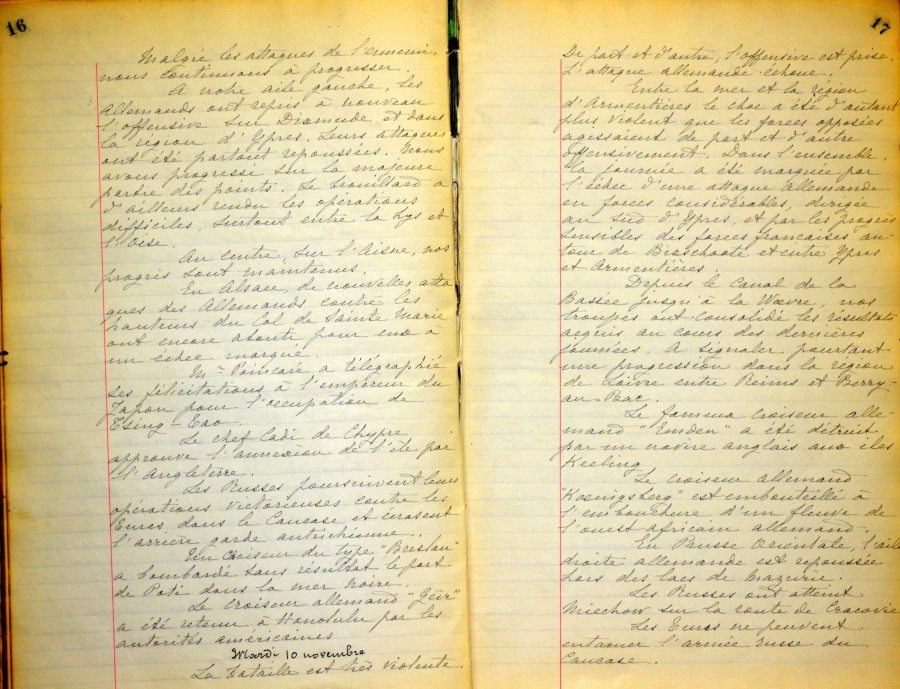 16
Malgré les attaques de l'ennemi,
nous continuons à progresser.
A notre aile gauche, les
Allemands ont repris à nouveau
l'offensive sur Dixmude et dans
la région d'Ypres. Leurs attaques
ont été partout repoussées. Nous
avons progressé sur la majeure
partie des points. Le brouillard a
d'ailleurs rendu les opérations
difficiles, surtout entre la Lys et
l'Oise.
Au centre, sur l'Aisne, nos
progrès sont maintenus.
En Alsace, de nouvelles atta
ques des Allemands contre les
hauteurs du Col de Sainte Marie
ont encore abouti pour eux à
un échec marqué.
Mr Poincaré, a télégraphié
ses félicitations à l'empereur du
Japon pour l'occupation de
Tsing-Tao.
Le chef Cadi de Chypre
approuve l'annexion de l'île par
l'Angleterre.
Les Russes poursuivent leurs
opérations victorieuses contre les
Turcs dans le Caucase et écrasent
l'arrière garde autrichienne.
Un croiseur du type "Breslau"
a bombardé sans résultat le port
de Poti dans la mer Noire.
Le croiseur allemand "Geïr"
a été retenu à Honolulu par les
autorités américaines
Mardi 10 novembre
La bataille est très violente.
17
De part et d'autre, l'offensive est prise.
L'attaque allemande échoue.
Entre la mer et la région
d'Armentières le choc a été d'autant
plus violent que les forces opposées
agissaient de part et d'autre
offensivement. Dans l'ensemble,
la journée a été marquée par
l'échec d'une attaque allemande
en forces considérables, dirigée
au sud d'Ypres, et par les progrès
sensibles des forces françaises au-
tour de Bisschoote et entre Ypres
et Armentières.
Depuis le Canal de la
Bassée jusqu'à la Woevre, nos
troupes ont consolidé les résultats
acquis au cours des dernières
journées. A signaler pourtant
une progression dans la région
de Loivre entre Reims et Berry-
au-Bac.
Le fameux croiseur alle-
mand "Emden" a été détruit
par un navire anglais aux îles
Keeling
Le croiseur allemand
"Koenigsberg" est embouteillé à
l'embouchure d'un fleuve de
l'ouest africain allemand.
En Prusse Orientale, l'aile
droite allemande est repoussée
hors des lacs de Mazurie.
Les Russes ont atteint
Miechow sur la route de Cracovie
Les Turcs ne peuvent
entamer l'armée russe du
Caucase.